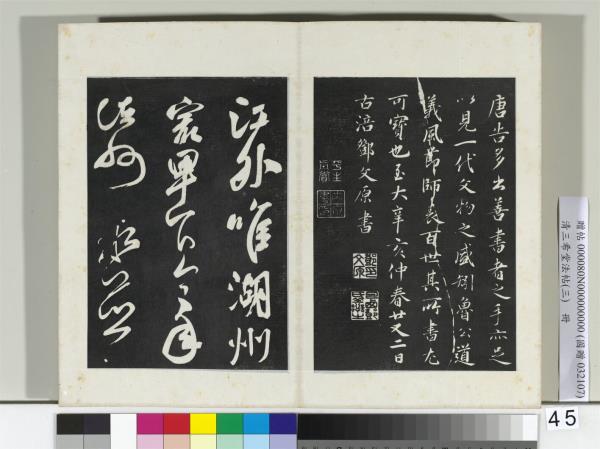 唐告多出善書者之手亦足
以見一代文物之盛矧魯公道
義風節師表百世其所書尤
可寶也至大辛亥仲春廿又二日
古涪鄧文原書
江外唯湖州
最卑下今年
諸州水並
贈帖 000080N000000000 (國贈 032107)
清三希堂法帖(三) 冊
45